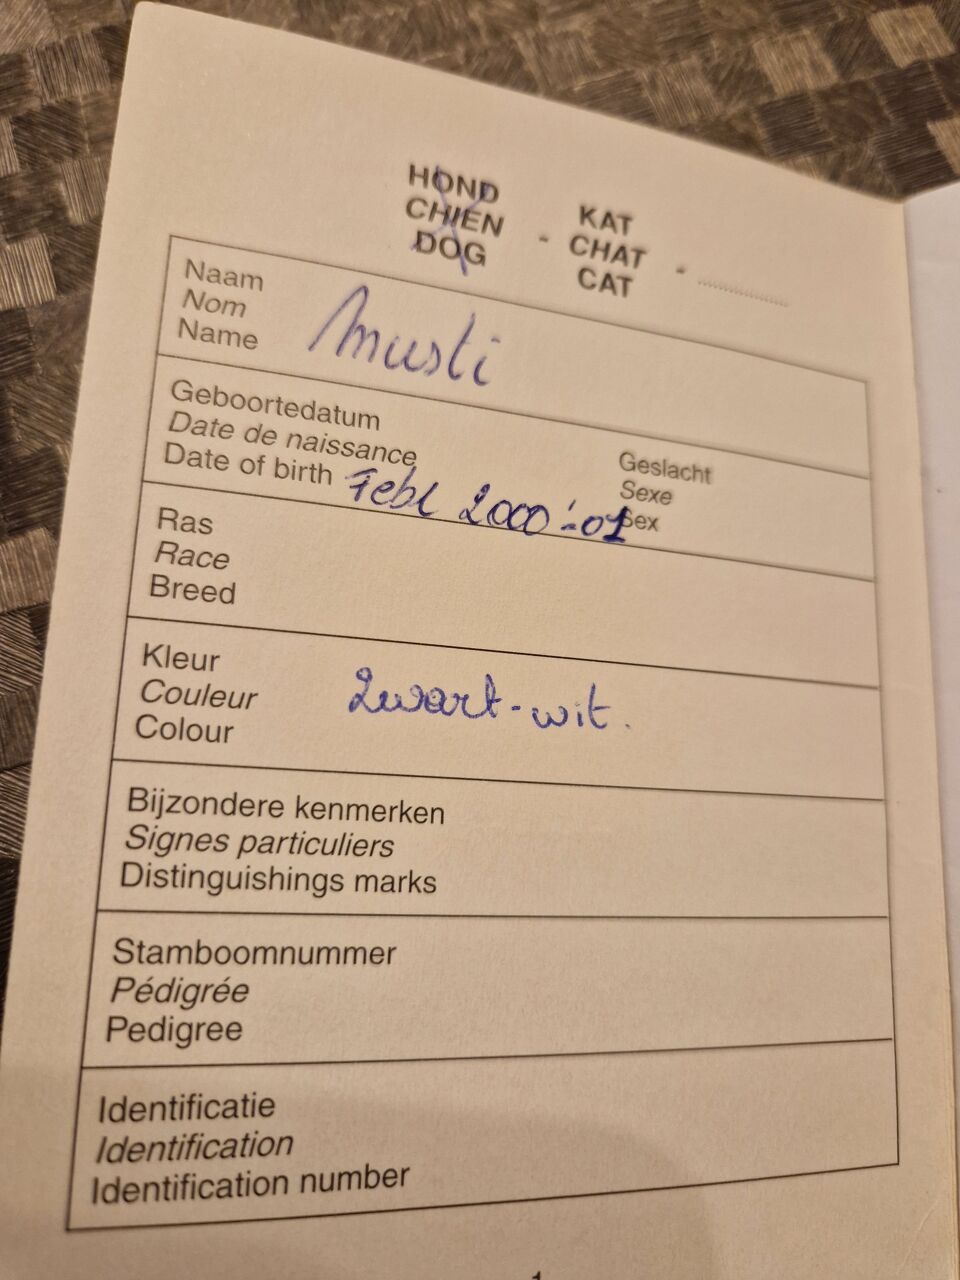 HOND
CHIEN - KAT
DOG CHAT - ..............
CAT
Naam
Nom
Name Musti
Geboortedatum
Date de naissance
Date of birth Febr 2000 '-01
Geslacht
Sexe
Sex
Ras
Race
Breed
Kleur
Couleur
Colour
Zwart-wit.
Bijzondere kenmerken
Signes particuliers
Distinguishings marks
Stamboomnummer
Pédigrée
Pedigree
Identificatie
Identification
Identification number
1